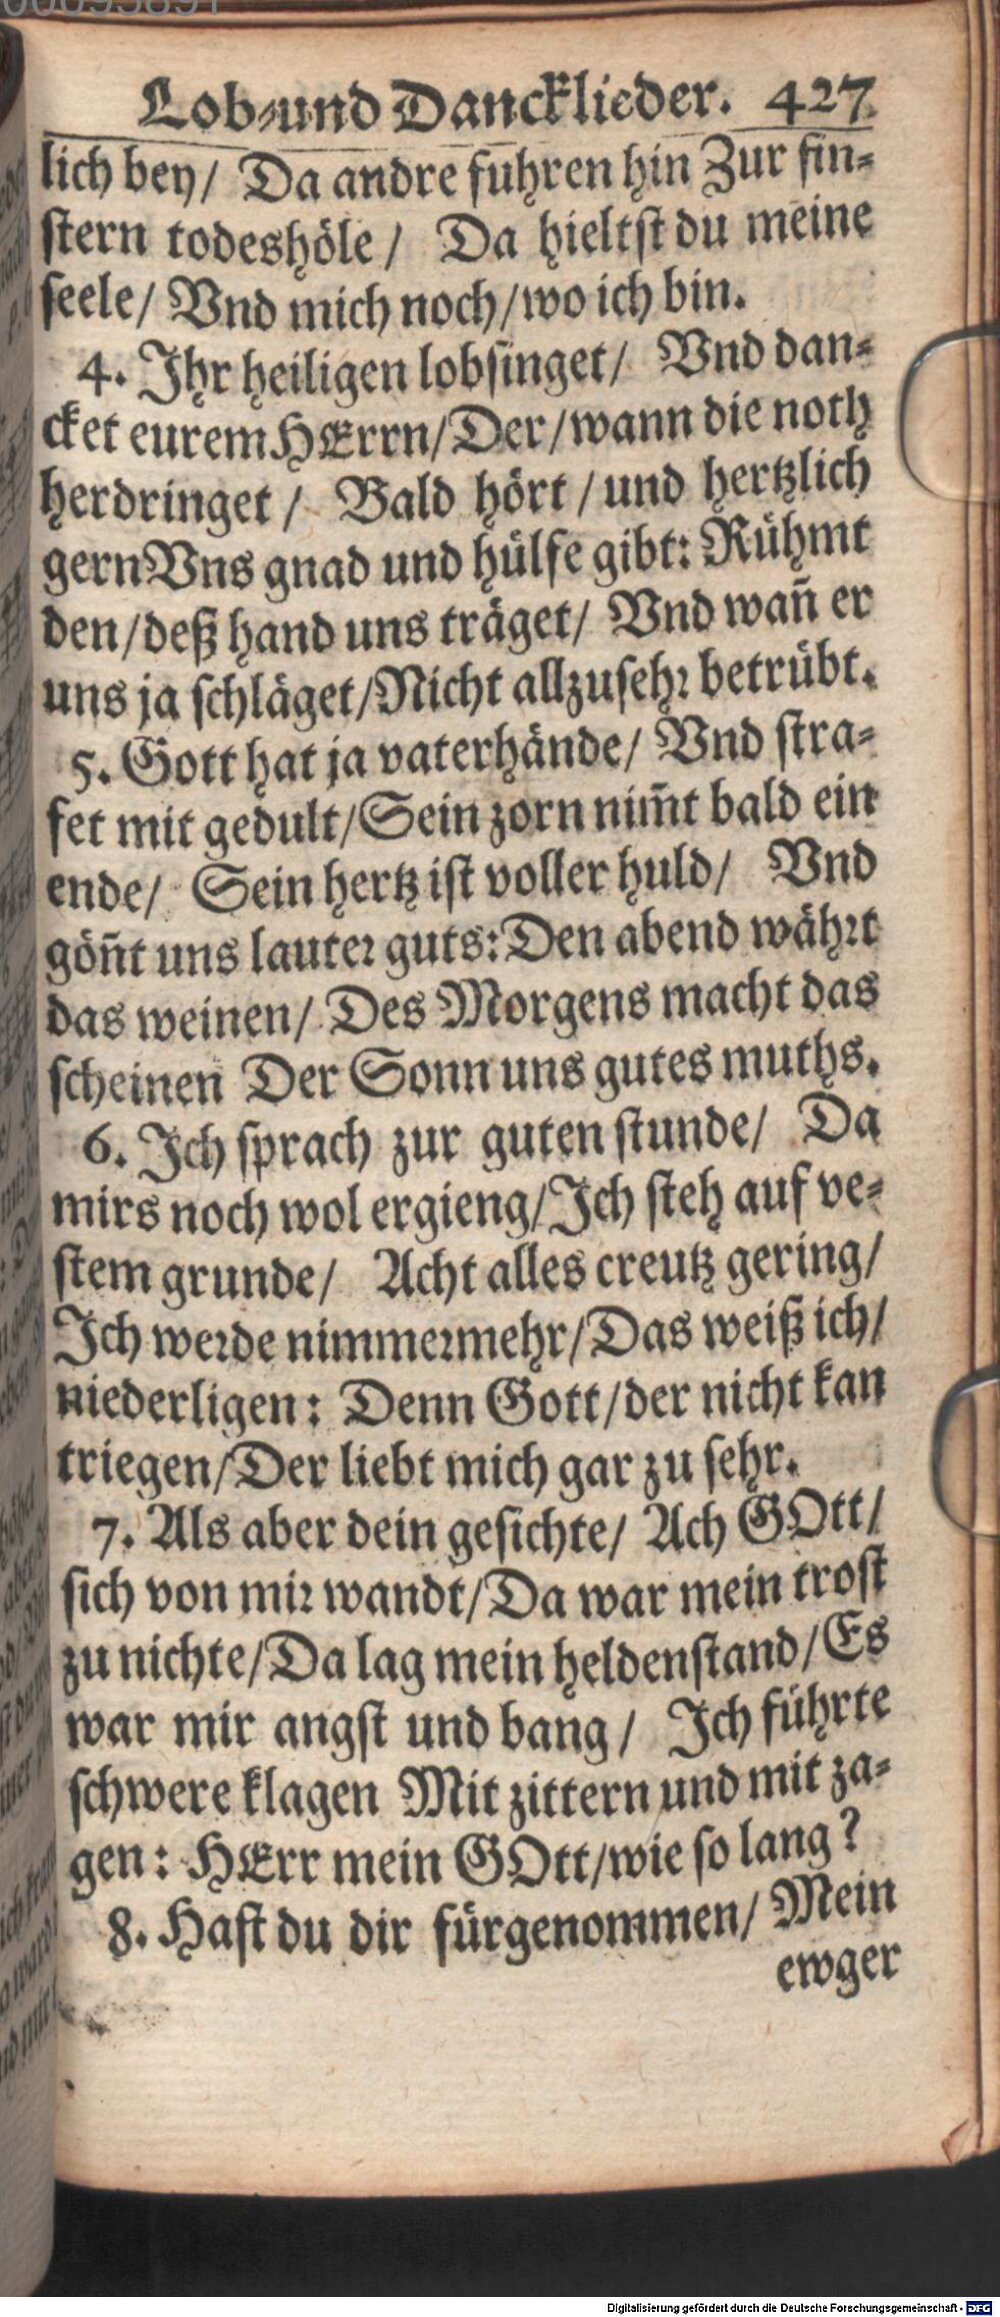 Lob-und Dancklieder. 427
lich bey/ Da andre fuhren hin Zur fin-
stern todeshöle/ Da hieltst du meine
seele/ Vnd mich noch/wo ich bin.
4. Ihr heiligen lobsinget/ Vnd dan-
cket eurem HErrn/Der/wann die noth
herdringet/ Bald hört/und hertzlich
gern Vns gnad und hülfe gibt: Rühmt
den/deß hand uns träget/ Vnd wañ er
uns ja schläget/Nicht allzusehr betrübt.
5. Gott hat ja vaterhände/ Vnd stra-
fet mit gedult/Sein zorn nim̃t bald ein
ende/ Sein hertz ist voller huld/ Vnd
göñt uns lauter guts: Den abend währt
das weinen/ Des Morgens macht das
scheinen Der Sonn uns gutes muths.
6. Ich sprach zur guten stunde/ Da
mirs noch wol ergieng/Ich steh auf ve-
stem grunde/ Acht alles creutz gering/
Ich werde nimmermehr/Das weiß ich/
niederligen: Denn Gott/der nicht kan
triegen/Der liebt mich gar zu sehr.
7. Als aber dein gesichte/ Ach GOtt/
sich von mir wandt/Da war mein trost
zu nichte/Da lag mein heldenstand/Es
war mir angst und bang/ Ich führte
schwere klagen Mit zittern und mit za-
gen: HErr mein GOtt/wie so lang?
8. Hast du dir fürgenommen/ Mein
ewger
Digitalisierung gefördert durch die Deutsche Forschungsgemeinschaft - DFG